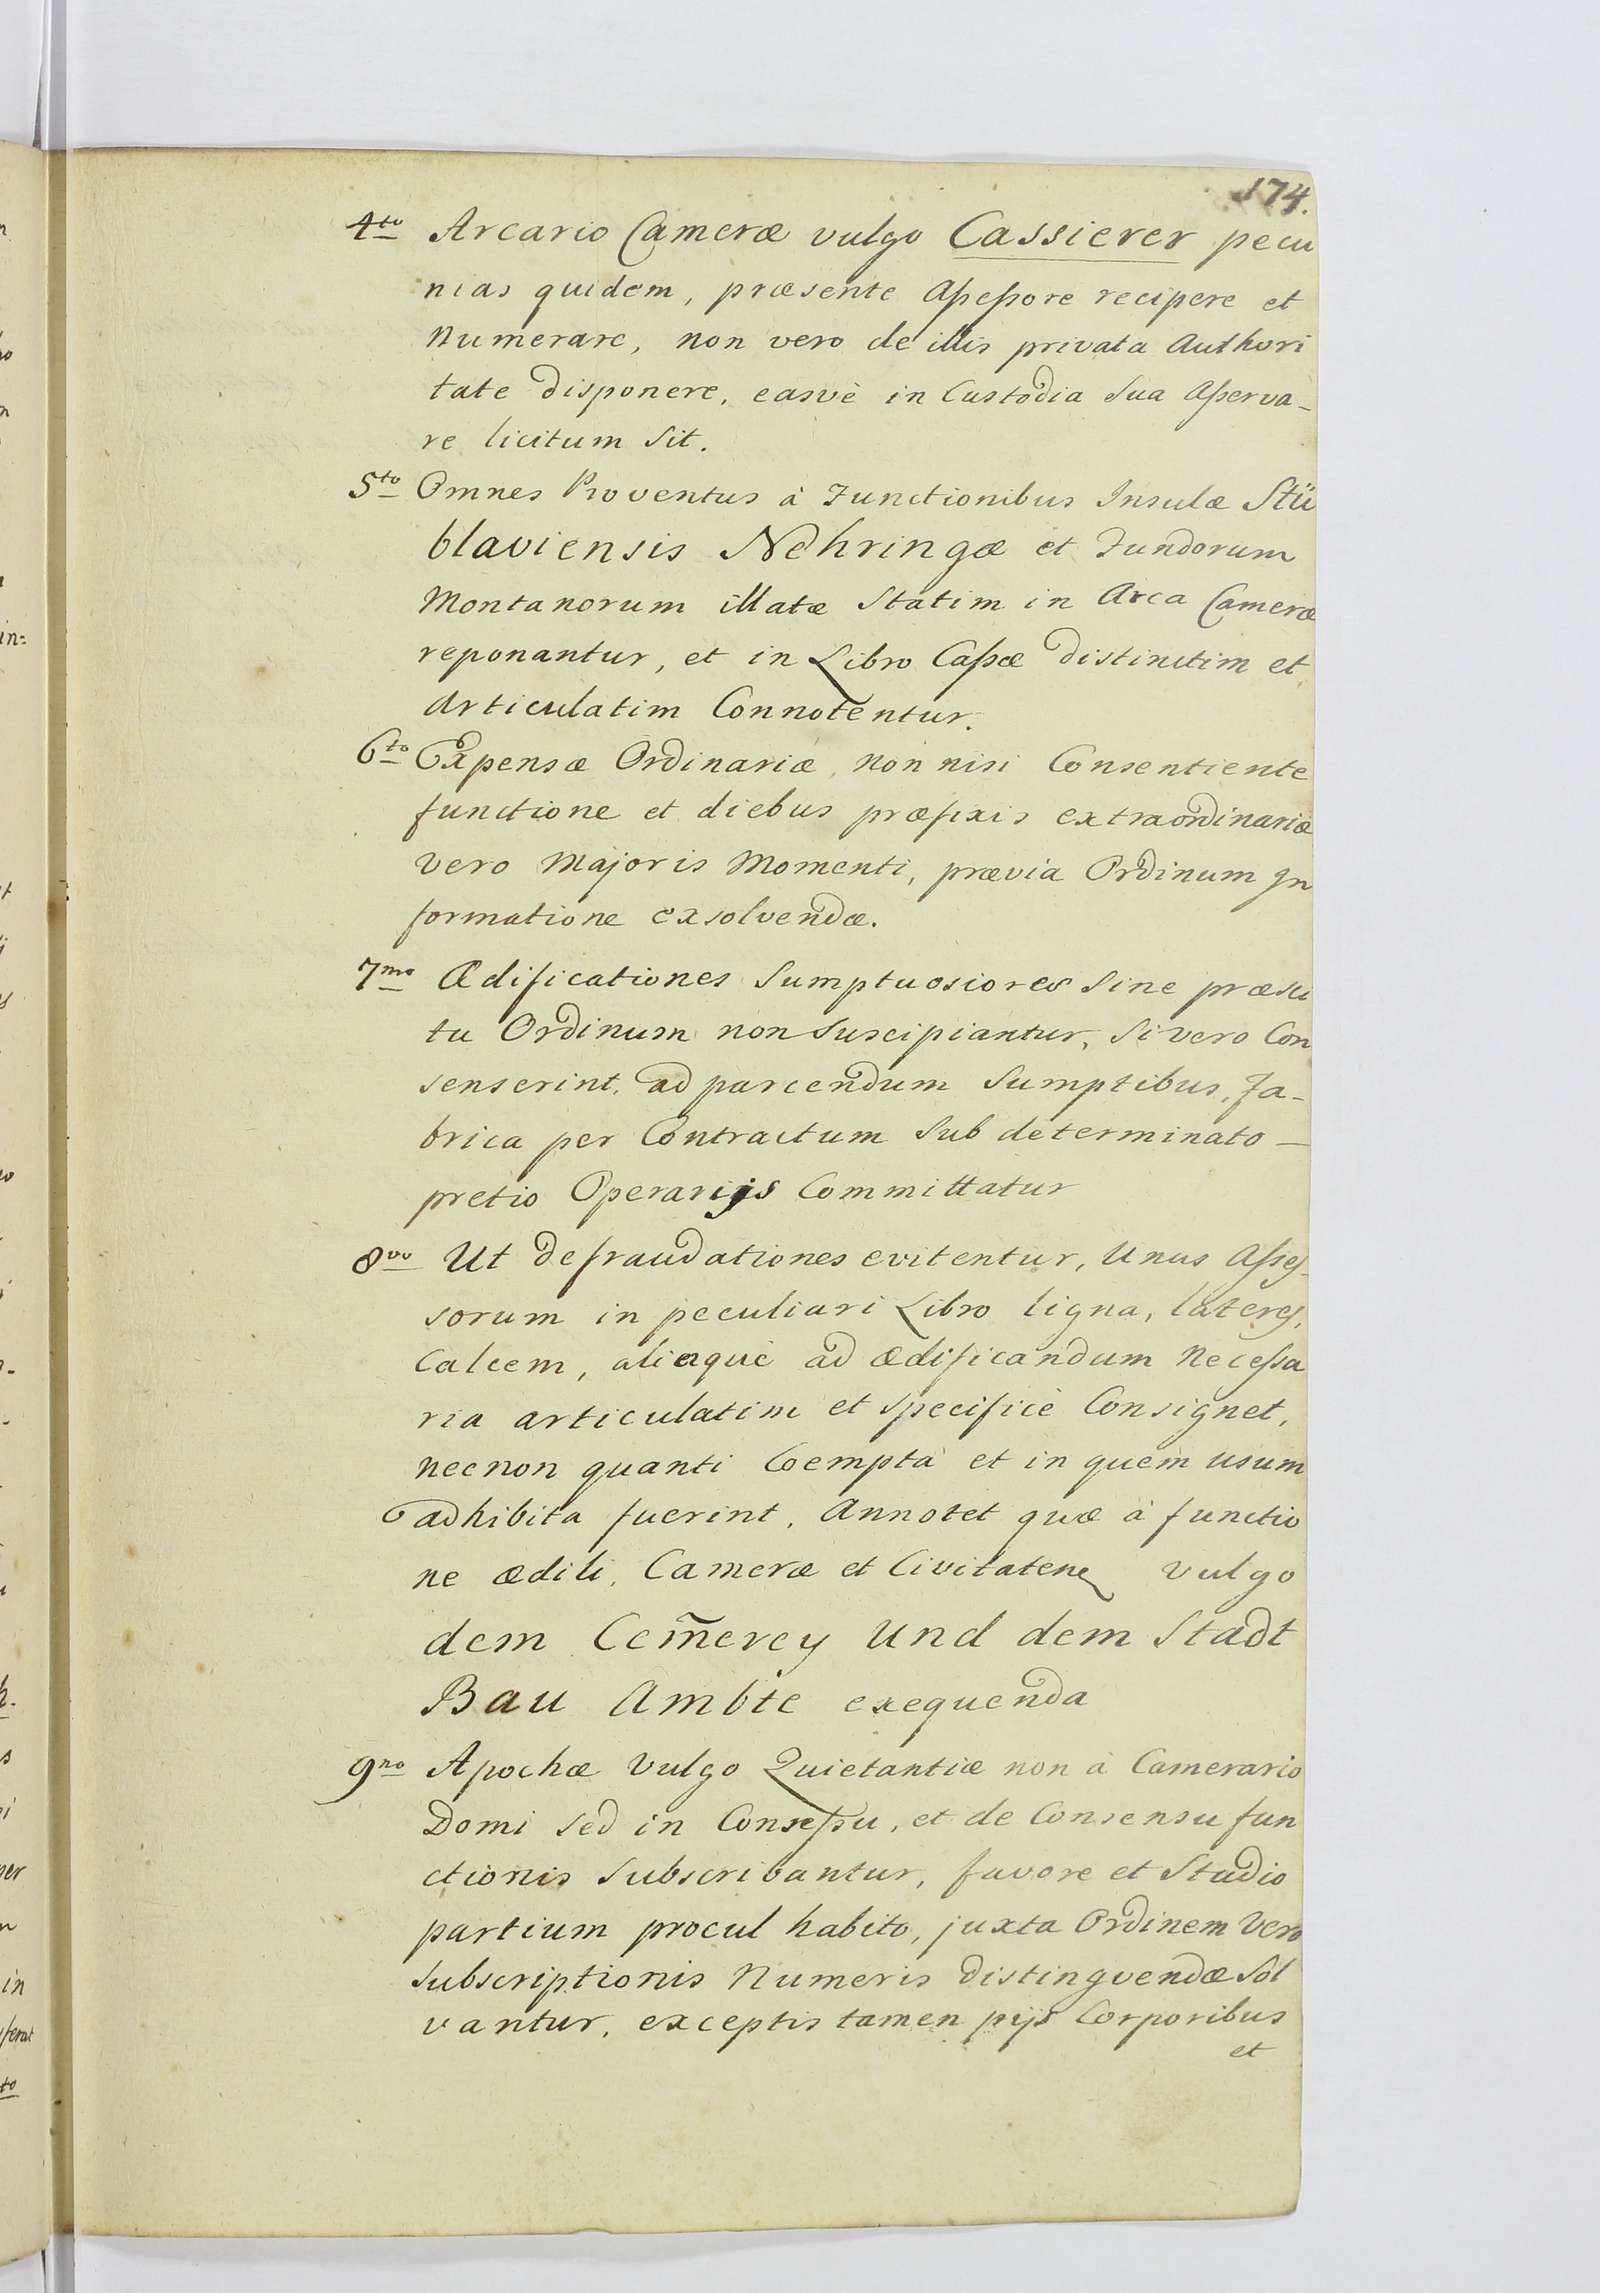 174.
4to Arcario Cameræ vulgo Cassierer pecu
nias quidem, præsente Assessore recipere et
Numerare, non vero de illis privata Authori
tate disponere, easvè in Custodia Sua Asserva-
re licitum Sit.
5to Omnes Proventus à Functionibus Insulæ Stü
blaviensis Nehringæ et Fundorum
Montanorum illatæ Statim in Arca Cameræ
reponantur, et in Libro Cassæ distinctim et
Articulatim Connotentur.
6to Expensæ Ordinariæ, non nisi Consentiente
functione et diebus præfixis extraordinariæ
vero Majoris Momenti, prævia Ordinum In
formatione exsolvendæ.
7mo Ædificationes Sumptuosiores Sine præsci
tu Ordinum non Suscipiantur, Si vero Con
senserint, ad parcendum Sumptibus, Fa-
brica per Contractum Sub determinato —
pretio Operarijs Committatur
8vo Ut defraudationes evitentur, Unus Asses-
sorum in peculiari Libro ligna, lateres,
Calcem, aliaquè ad ædificandum Necessa
ria articulatim et specificè Consignet,
necnon quanti Coempta et in quem usum
adhibita fuerint, Annotet quæ à functio
ne ædili, Cameræ et Civitatene vulgo
dem Cem̃erey und dem Stadt
Bau Ambte exequenda
9no Apochæ Vulgo Quietantiæ non à Camerario
Domi sed in Consessu, et de Consensu fun
ctionis Subscribantur, favore et Studio
partium procul habito, juxta Ordinem Vero
Subscriptionis Numeris distinguendæ Sol
vantur, exceptis tamen pijs Corporibus
et